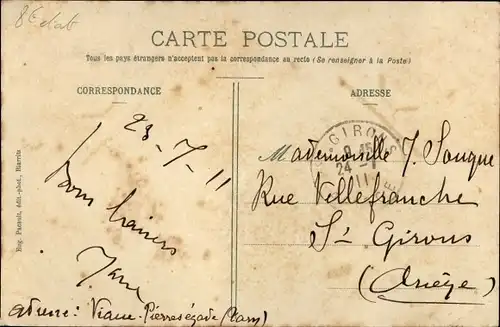 CARTE POSTALE
Tous les pays étrangers n'acceptent pas la correspondance au recto (Se renseigner à la Poste)
CORRESPONDANCE
ADRESSE
23-7-11
Bons baisers
Adresse: Viane-Pierreségade (Tarn)
GIRONS
24-7
11
Mademoiselle J. Souque
Rue Villefranche
St Girons
(Ariège)
Eug. Pacault, édit.-phot., Biarritz